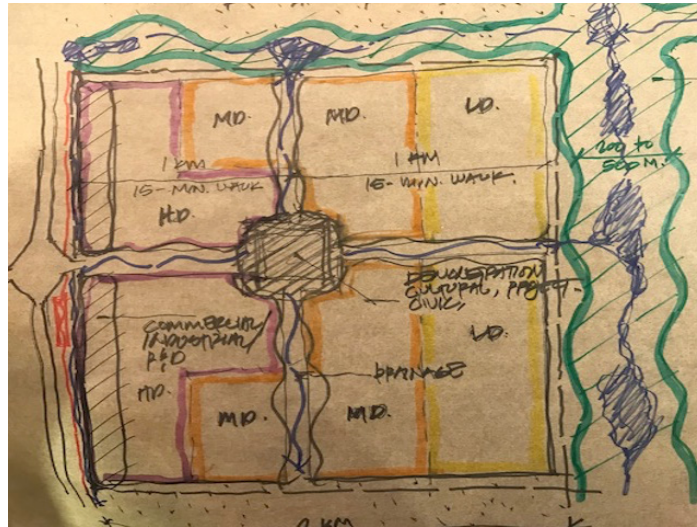 MD.
MD.
LD.
1 KM
15-MIN. WALK
1 KM
15-MIN. WALK
HD.
200 TO
500 M.
CULTURAL, PROJECT -
CIVIC,
COMMERCIAL/
INDUSTRIAL/
R&D
HD.
LD.
DRAINAGE
MD.
MD.
2 KM